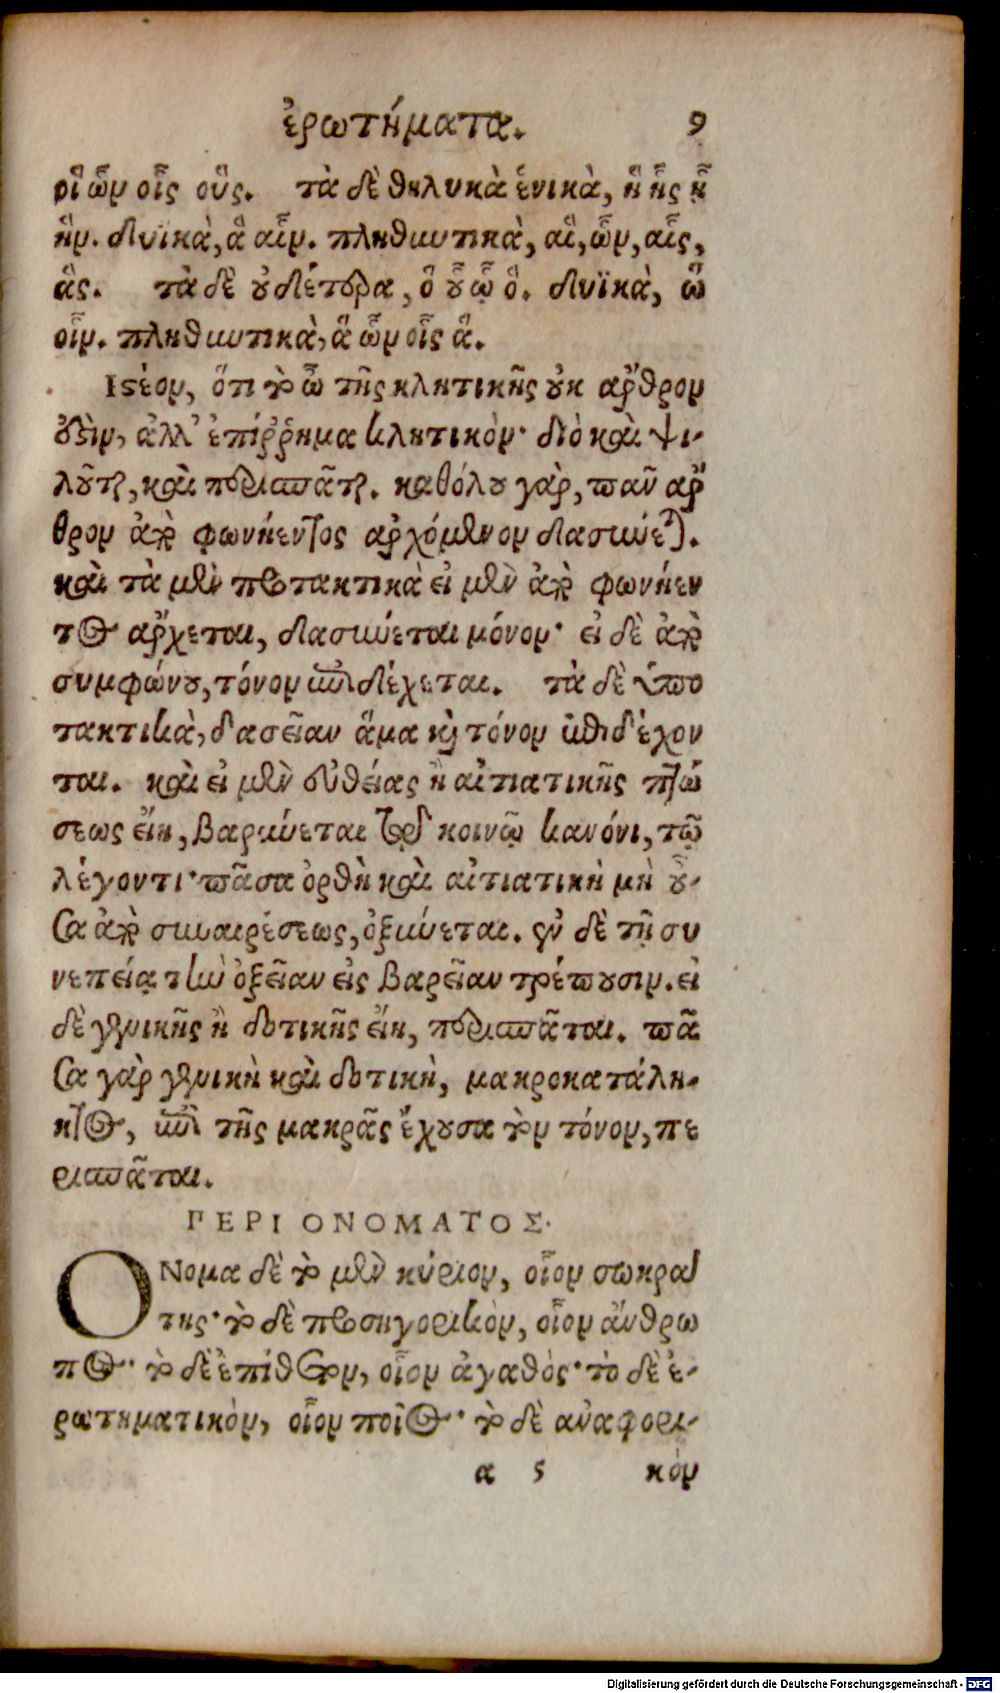 ἐρωτήματα. 9
οἳ ὧν οἷς οὕς. τὰ δὲ θηλυκὰ ἑνικὰ, ἣ ἧς ᾗ
ἥν. δυϊκὰ, ἃ αἷν. πληθυντικὰ, αἵ, ὧν, αἷς,
ἅς. τὰ δὲ οὐδέτερα, ὃ οὗ ᾧ ὅ. δυϊκὰ, ὣ
οἷν. πληθυντικὰ, ἃ ὧν οἷς ἅ.
Ιστέον, ὅτι τὸ ὦ τῆς κλητικῆς οὐκ ἄρθρον
ὅθεν, ἀλλ' ἐπίῤῥημα κλητικόν· διὸ καὶ ψι-
λοῦται, καὶ περισπᾶται. καθόλου γὰρ, πᾶν ἄρ
θρον ἀπὸ φωνήεντος ἀρχόμενον δασύνεται.
καὶ τὰ μὲν προτακτικὰ εἰ μὲν ἀπὸ φωνήεν
τος ἄρχεται, δασύνεται μόνον· εἰ δὲ ἀπὸ
συμφώνου, τόνον ἐπιδέχεται. τὰ δὲ ὑπο
τακτικὰ, δασεῖαν ἅμα καὶ τόνον ἐπιδέχον
ται. καὶ εἰ μὲν εὐθείας ἢ αἰτιατικῆς πτώ
σεως εἴη, βαρύνεται κοινῷ κανόνι, τῷ
λέγοντι· πᾶσα ὀρθὴ καὶ αἰτιατικὴ μὴ οὖ-
σα ἀπὸ συναιρέσεως, ὀξύνεται. ἐν δὲ τῇ συ
νεπείᾳ τὴν ὀξεῖαν εἰς βαρεῖαν τρέπουσιν. εἰ
δὲ γενικῆς ἢ δοτικῆς εἴη, περισπᾶται. πᾶ
σα γὰρ γενικὴ καὶ δοτικὴ, μακροκατάλη-
κτος, ἐπὶ τῆς μακρᾶς ἔχουσα τὸν τόνον, πε
ρισπᾶται.
ΠΕΡΙ ΟΝΟΜΑΤΟΣ.
ΟΝομα δὲ τὸ μὲν κύριον, οἷον σωκρά
της· τὸ δὲ προσηγορικὸν, οἷον ἄνθρω
πος· τὸ δὲ ἐπίθετον, οἷον ἀγαθός· τὸ δὲ ἐ-
ρωτηματικὸν, οἷον ποῖος· τὸ δὲ ἀναφορι-
α 5 κόν